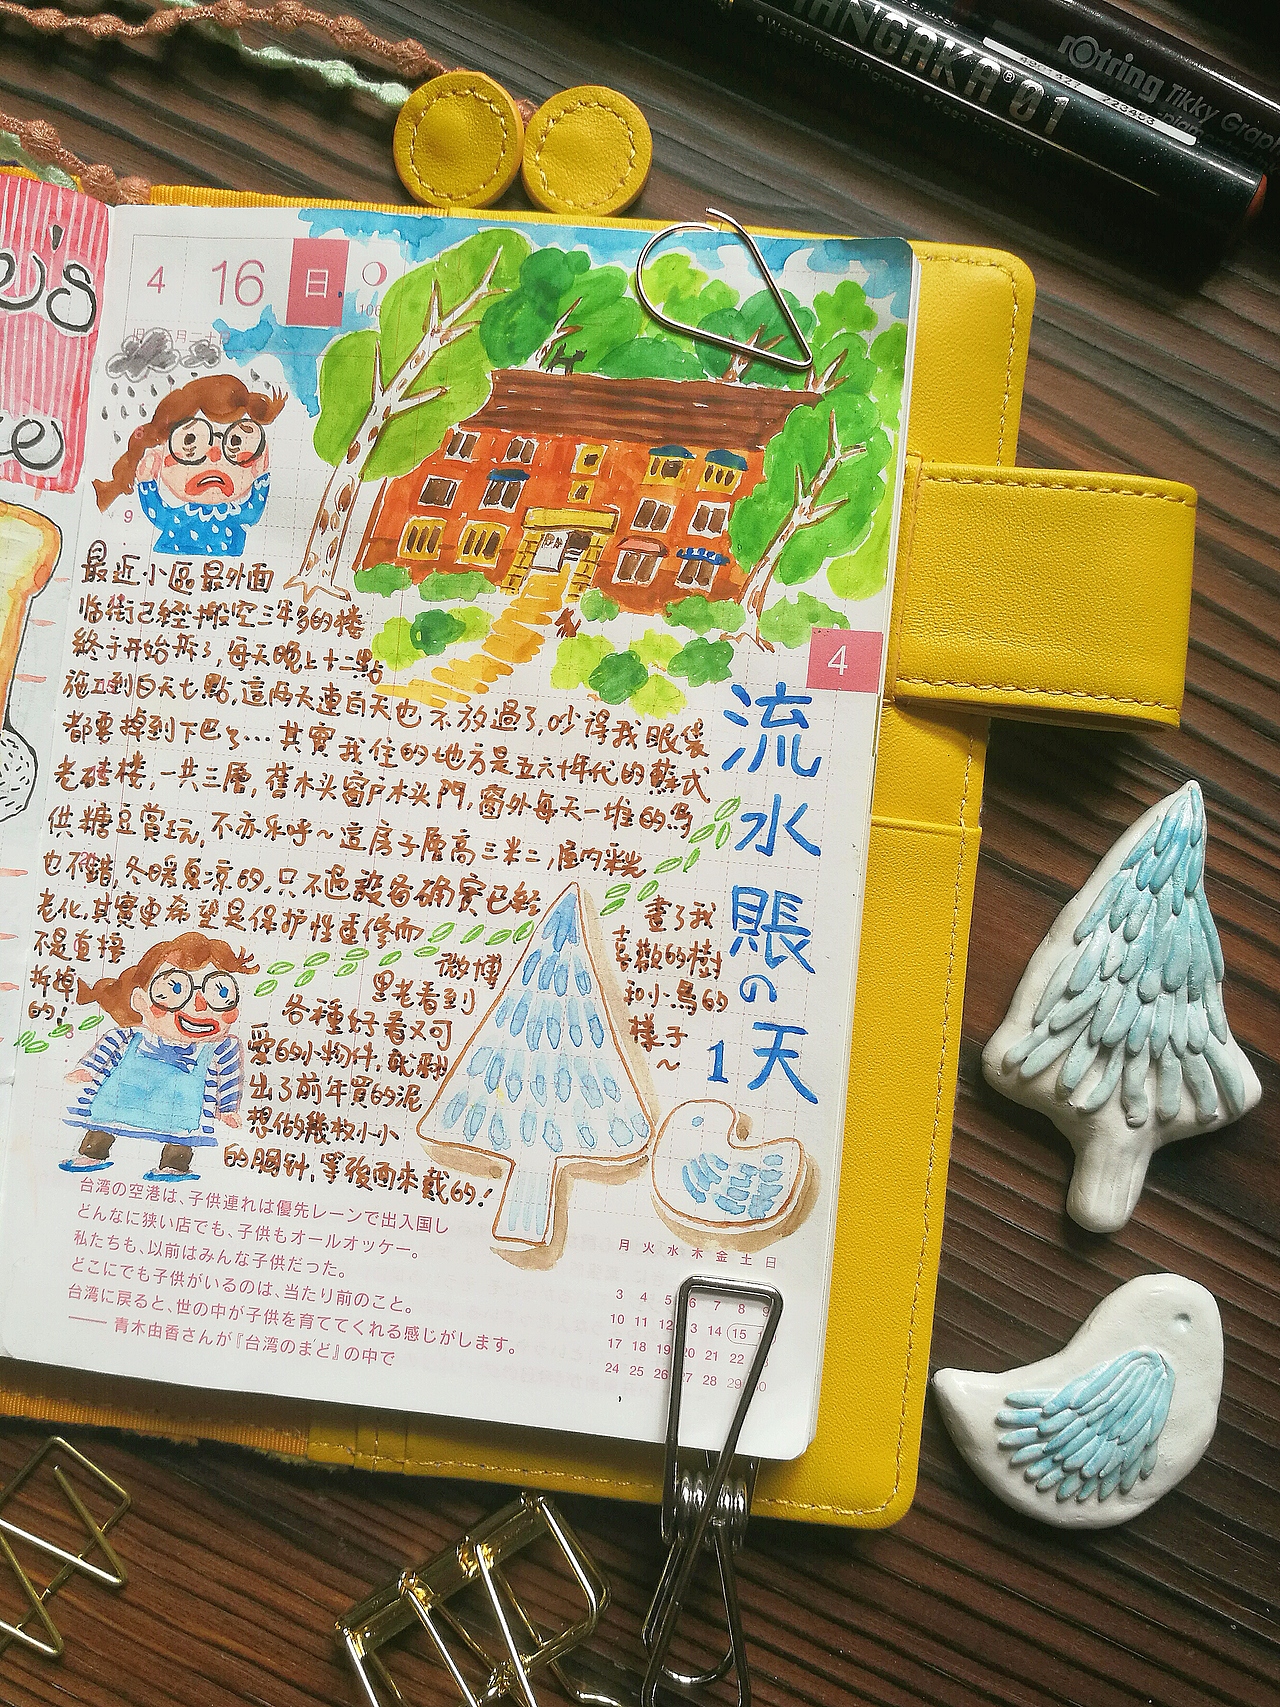 MANGAKA® 01
•Water-based Pigment •Keep horizontal
rOtring Tikky Graph
e's
4 16 日
9
最近小區最外面
临街已經搬空三年多的楼
終于开始拆了,每天晚上十二點
施工到白天七點,這兩天連白天也不放過了,吵得我眼袋
都要掉到下巴了…其實我住的地方是五六十年代的蘇式
老磚楼,一共三層,舊木头窗户木头門,窗外每天一堆的鸟
供糖豆賞玩,不亦乐呼~這房子層高三米二,屋内采光
也不錯,冬暖夏凉的,只不過設备确實已經
老化,其實更希望是保护性重修而
不是直接
拆掉
的!
4
流水賬の1天
微博
里老看到
各種好看又可
愛的小物件,就翻
出了前年買的泥
想做幾枚小小
的胸针,等後面來戴的!
畫了我
喜歡的樹
和小鳥的
樣子
~
台湾の空港は、子供連れは優先レーンで出入国し
どんなに狭い店でも、子供もオールオッケー。
私たちも、以前はみんな子供だった。
どこにでも子供がいるのは、当たり前のこと。
台湾に戻ると、世の中が子供を育ててくれる感じがします。
—— 青木由香さんが『台湾のまど』の中で
月 火 水 木 金 土 日
3 4 5 6 7 8 9
10 11 12 13 14 15
17 18 19 20 21 22
24 25 26 27 28 29 30